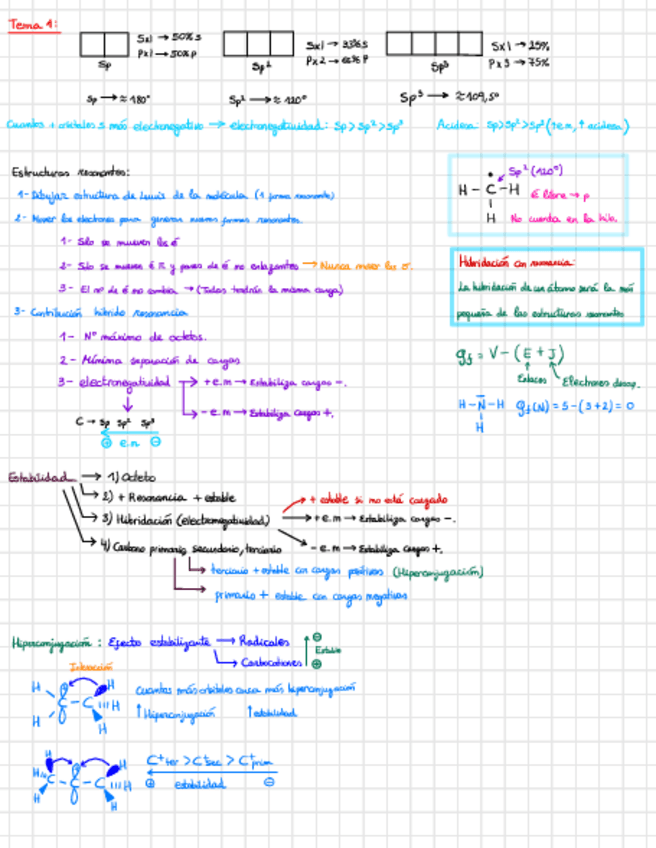 Tema 1:
Sx1 → 50% s
Px1 → 50% p
Sp
Sx1 → 33% s
Px2 → 66% P
Sp²
Sx1 → 25%
Px3 → 75%
Sp³
Sp → ≈ 180°
Sp² → ≈ 120°
Sp³ → ≈ 109,5°
Cuantos + orbitales s más electronegativo → electronegatividad: Sp > Sp² > Sp³
Acideza: Sp > Sp² > Sp³ (↑e.n, ↑ acideza)
Estructuras resonantes:
1- Dibujar estructura de Lewis de la molécula (1 forma resonante)
2- Mover los electrones para generar nuevas formas resonantes.
1- Sólo se mueven los é
2- Sólo se mueve é π y pares de é no enlazantes → Nunca mover los σ.
3- El nº de é no cambia → (Todas tendrán la misma carga)
3- Contribución híbrido resonancia
1- Nº máximo de octetos.
2- Mínima separación de cargas
3- electronegatividad → + e.n → Estabiliza cargas -.
- e.n → Estabiliza cargas +.
C → Sp Sp² Sp³
⊕ e.n ⊖
Sp² (120°)
H - C - H
H
é libre → p
No cuenta en la hib.
Hibridación con resonancia:
La hibridación de un átomo será la más
pequeña de las estructuras resonantes
gf = V - (E + J)
Enlaces
Electrones desap.
H - N - H
H
gf (N) = 5 - (3+2) = 0
Estabilidad → 1) Octeto
2) + Resonancia + estable
3) Hibridación (electronegatividad)
+ estable si no está cargado
+ e.n → Estabiliza cargas -.
- e.n → Estabiliza cargas +.
4) Carbono primario, secundario, terciario
terciario + estable con cargas positivas (Hiperconjugación)
primario + estable con cargas negativas
Hiperconjugación: Efecto estabilizante → Radicales
Carbocationes
⊖
Estable
⊕
Interacción
H H
C - C H
H H
Cuantos más orbitales cerca más hiperconjugación
↑ Hiperconjugación ↑ estabilidad
H H
H C - C - C H
H H
C⁺ter > C⁺sec > C⁺prim
⊕ estabilidad ⊖